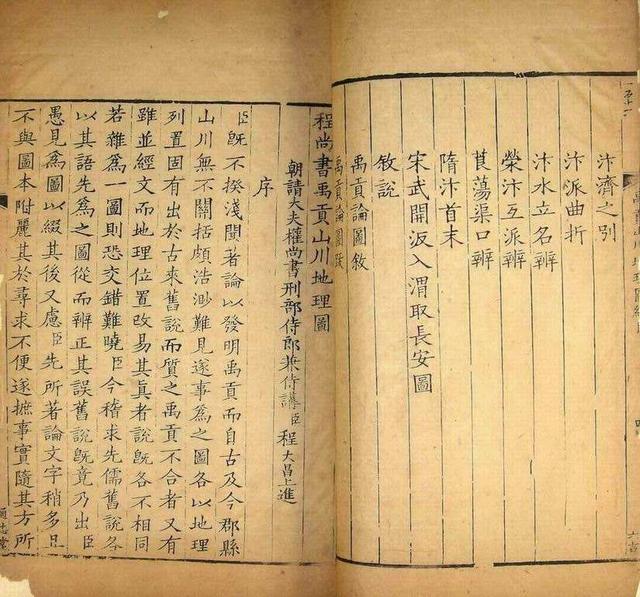 汴濟之别
汴派曲折
汴水立名辨
滎汴互派辨
莨蕩渠口辨
隋汴首末
宋武開汳入渭取長安圖
敘說
禹貢論圖敘
禹貢論圖
程尚書禹貢山川地理圖
朝請大夫權尚書刑部侍郎兼侍講臣程大昌上進
序
臣既不揆淺聞著論以發明禹貢而自古及今郡縣
山川無不關括頗浩渺難見遂事為之圖各以地理
列置固有出於古來舊說而質之禹貢不合者又有
雖並經文而地理位置改易其真者說既各不相同
若雜為一圖則恐交錯難曉臣今稽求先儒舊說各
以其語先為之圖從而辨正其誤舊說既竟乃出臣
愚見為圖以綴其後又慮臣先所著論文字稍多且
不與圖本附麗其於尋求不便遂摭事實隨其方所
通志堂